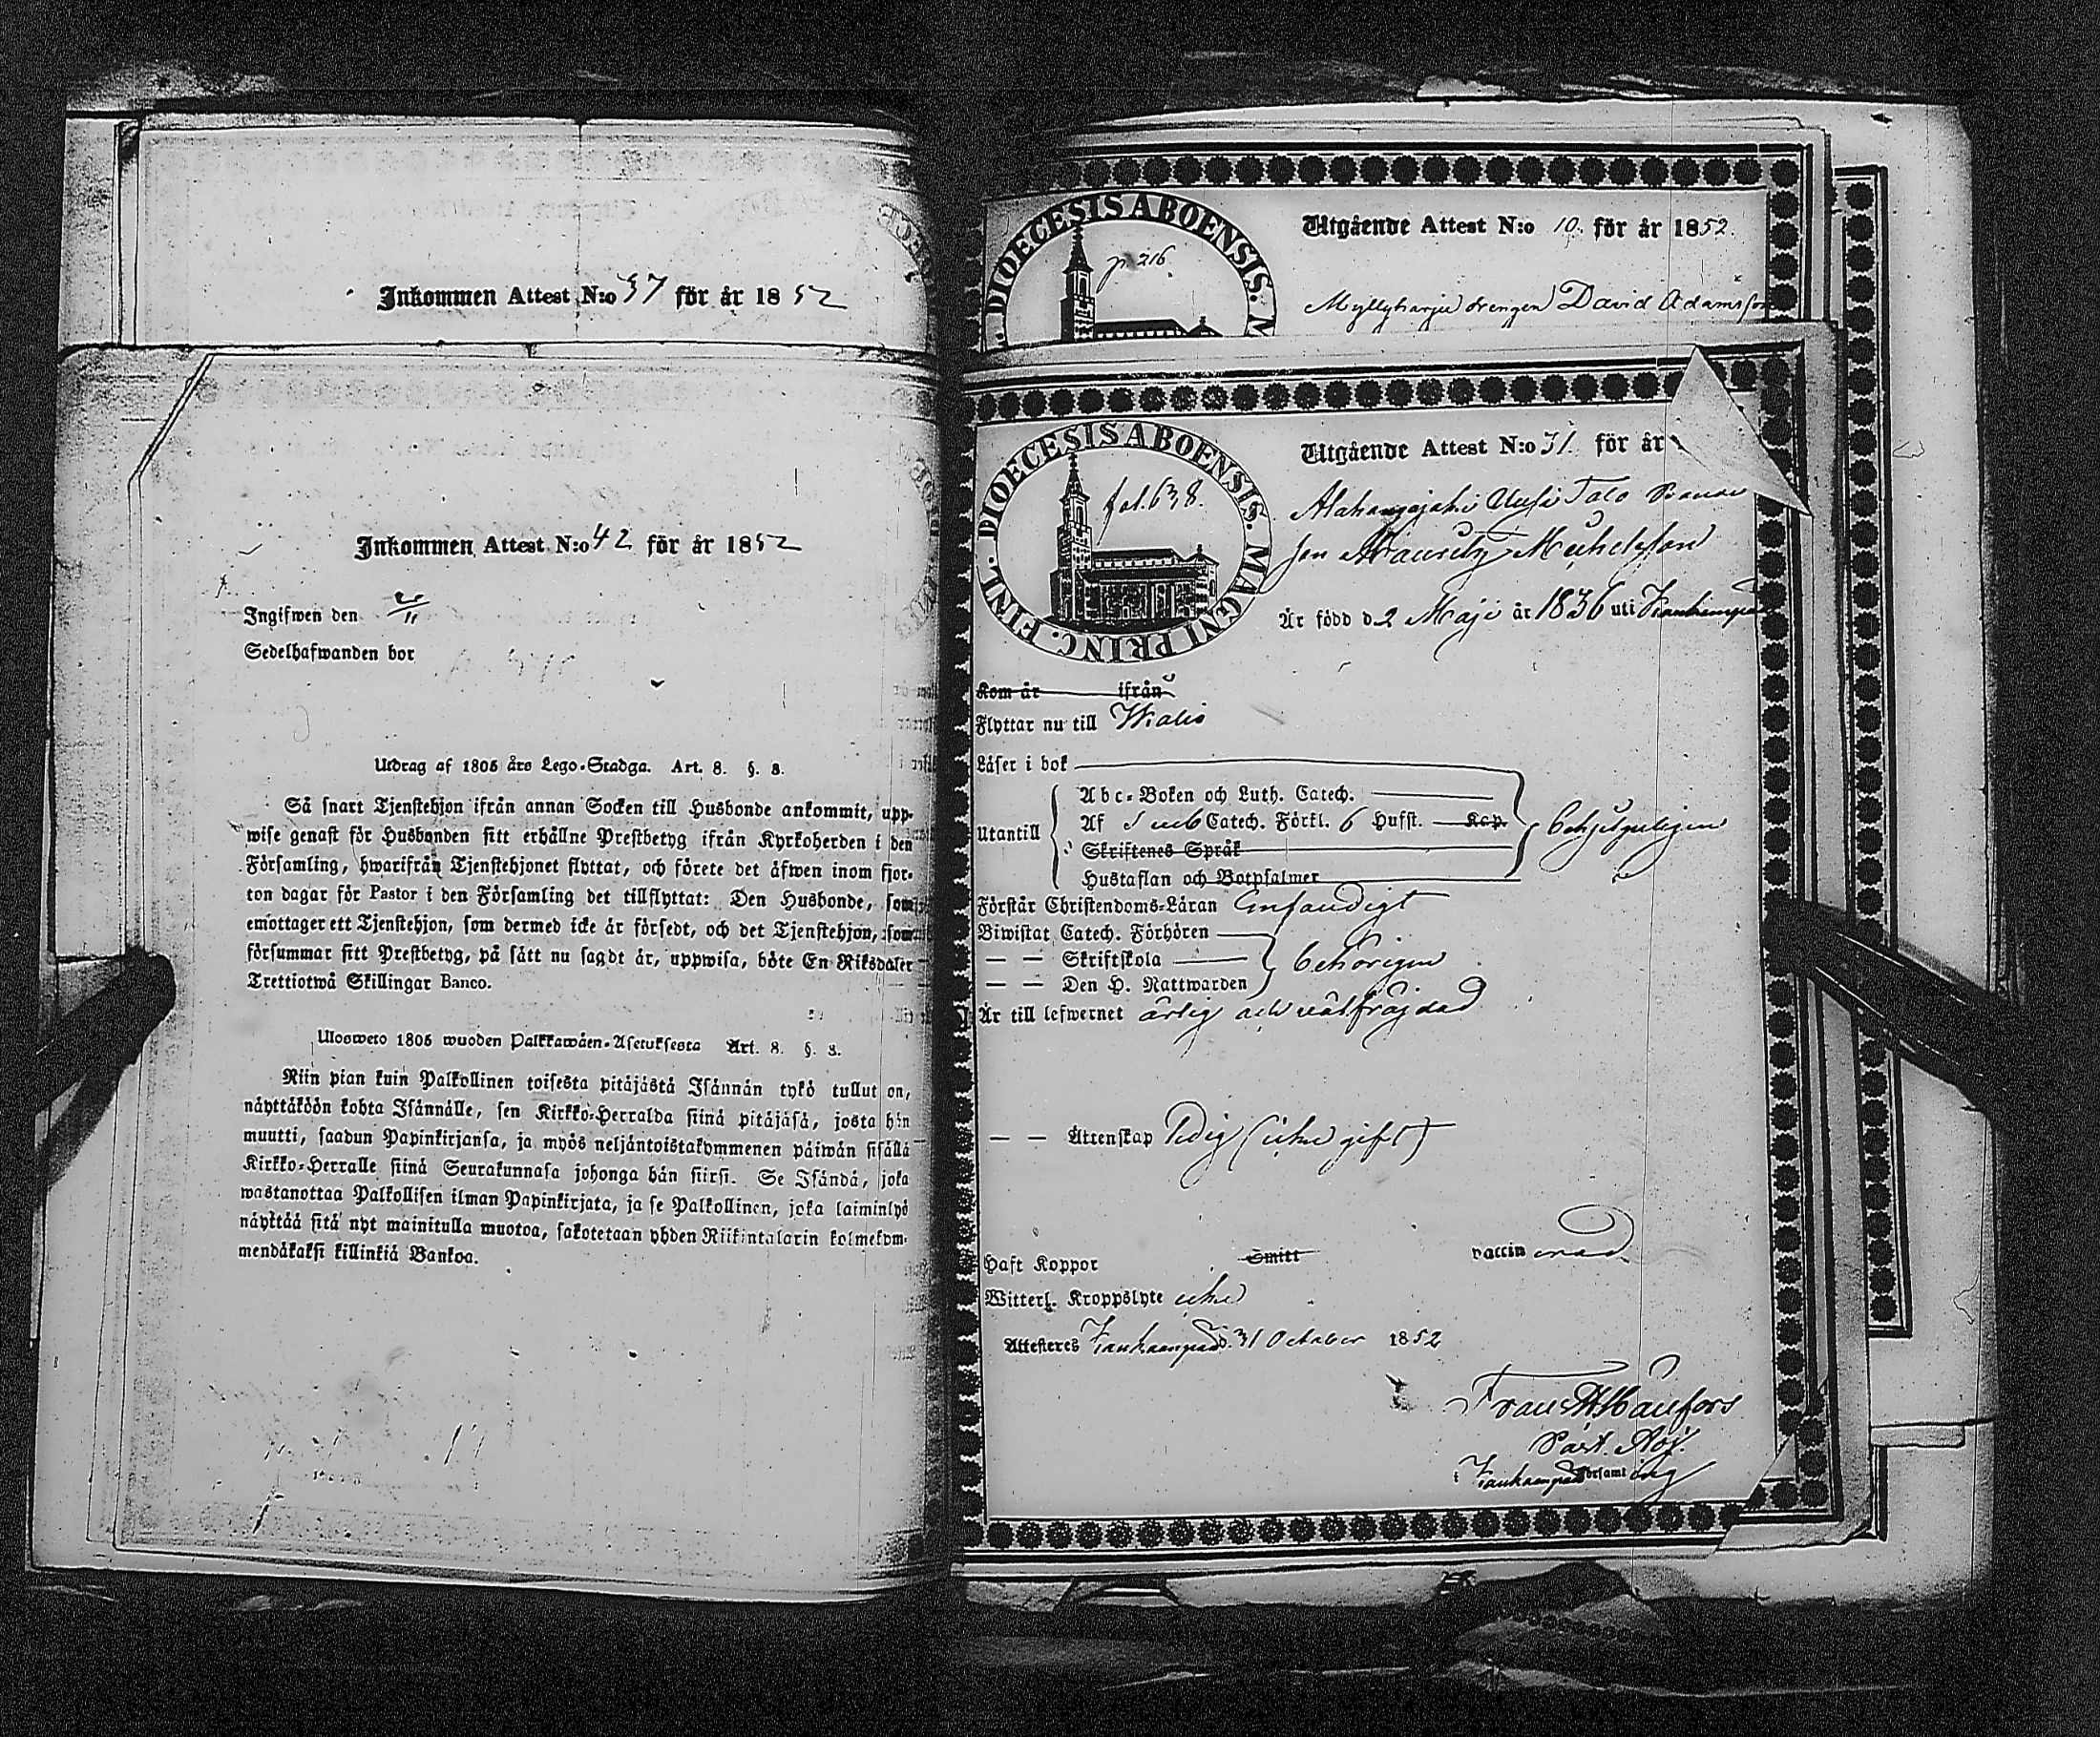 Inkommen Attest N:o 37 för år 1852
Inkommen Attest N:o 42 för år 1852
Ingifwen den
Sedelhafwanden bor
Utdrag af 1805 års Lego-Stadga. Art. 8. §. 3.
Så snart Tjenstehjon ifrån annan Socken till Husbonde ankommit, upp-
wise genast för Husbonden sitt erhållne Prestbetyg ifrån Kyrkoherden i den
Församling, hwarifrån Tjenstehjonet flyttat, och förete det äfwen inom fjor-
ton dagar för Pastor i den Församling det tillflyttat: Den Husbonde, som
emottager ett Tjenstehjon, som dermed icke är försedt, och det Tjenstehjon, som
försummar sitt Prestbetyg, på sätt nu sagdt är, uppwisa, böte En Riksdaler
Trettiotwå Skillingar Banco.
Uloswero 1805 wuoden Palkkawäen-Asetuksesta Art. 8. §. 3.
Niin pian kuin Palkollinen toisesta pitäjästä Isännän tykö tullut on,
näyttäköön kohta Isännälle, sen Kirkko-Herralda siinä pitäjäsä, josta hän
muutti, saadun Papinkirjansa, ja myös neljäntoistakymmenen päiwän sisällä
Kirkko-Herralle siinä Seurakunnasa johonga hän siirsi. Se Isändä, joka
wastanottaa Palkollisen ilman Papinkirjata, ja se Palkollinen, joka laiminlyö
näyttää sitä nyt mainitulla muotoa, sakotetaan yhden Riikintalarin kolmekym-
mendäkaksi killinkiä Bankoa.
DIOECESIS ABOENSIS. M
p. 216
Utgående Attest N:o 10. för år 1852.
Myllyharju drengen David Adamsson
DIOECESIS ABOENSIS. MAGNI PRINC. FINL.
fol. 638.
Utgående Attest N:o 31. för år
Uusi Talo
son Mauritz Michelsson
Är född d. 2 Maji år 1836 uti
Kom år ifrån
Flyttar nu till
Läser i bok
Utantill
Abc-Boken och Luth. Catech.
Af Catech. Förkl. 6 Hufst. Kap.
Skriftenes Språk
Hustaflan och Botpsalmer
Förstår Christendoms-Läran enfaldigt
Biwistat Catech. Förhören
— — Skriftskola
— — Den H. Nattwarden
behörigen
Är till lefwernet ärlig och välfräjdad
— — Ättenskap ledig (icke gift)
Haft Koppor Smitt vaccinerad
Witterl. Kroppslyte icke
Attesteres Kankaanpää d. 31 October 1852
Past. Adj.
Kankaanpää Församling